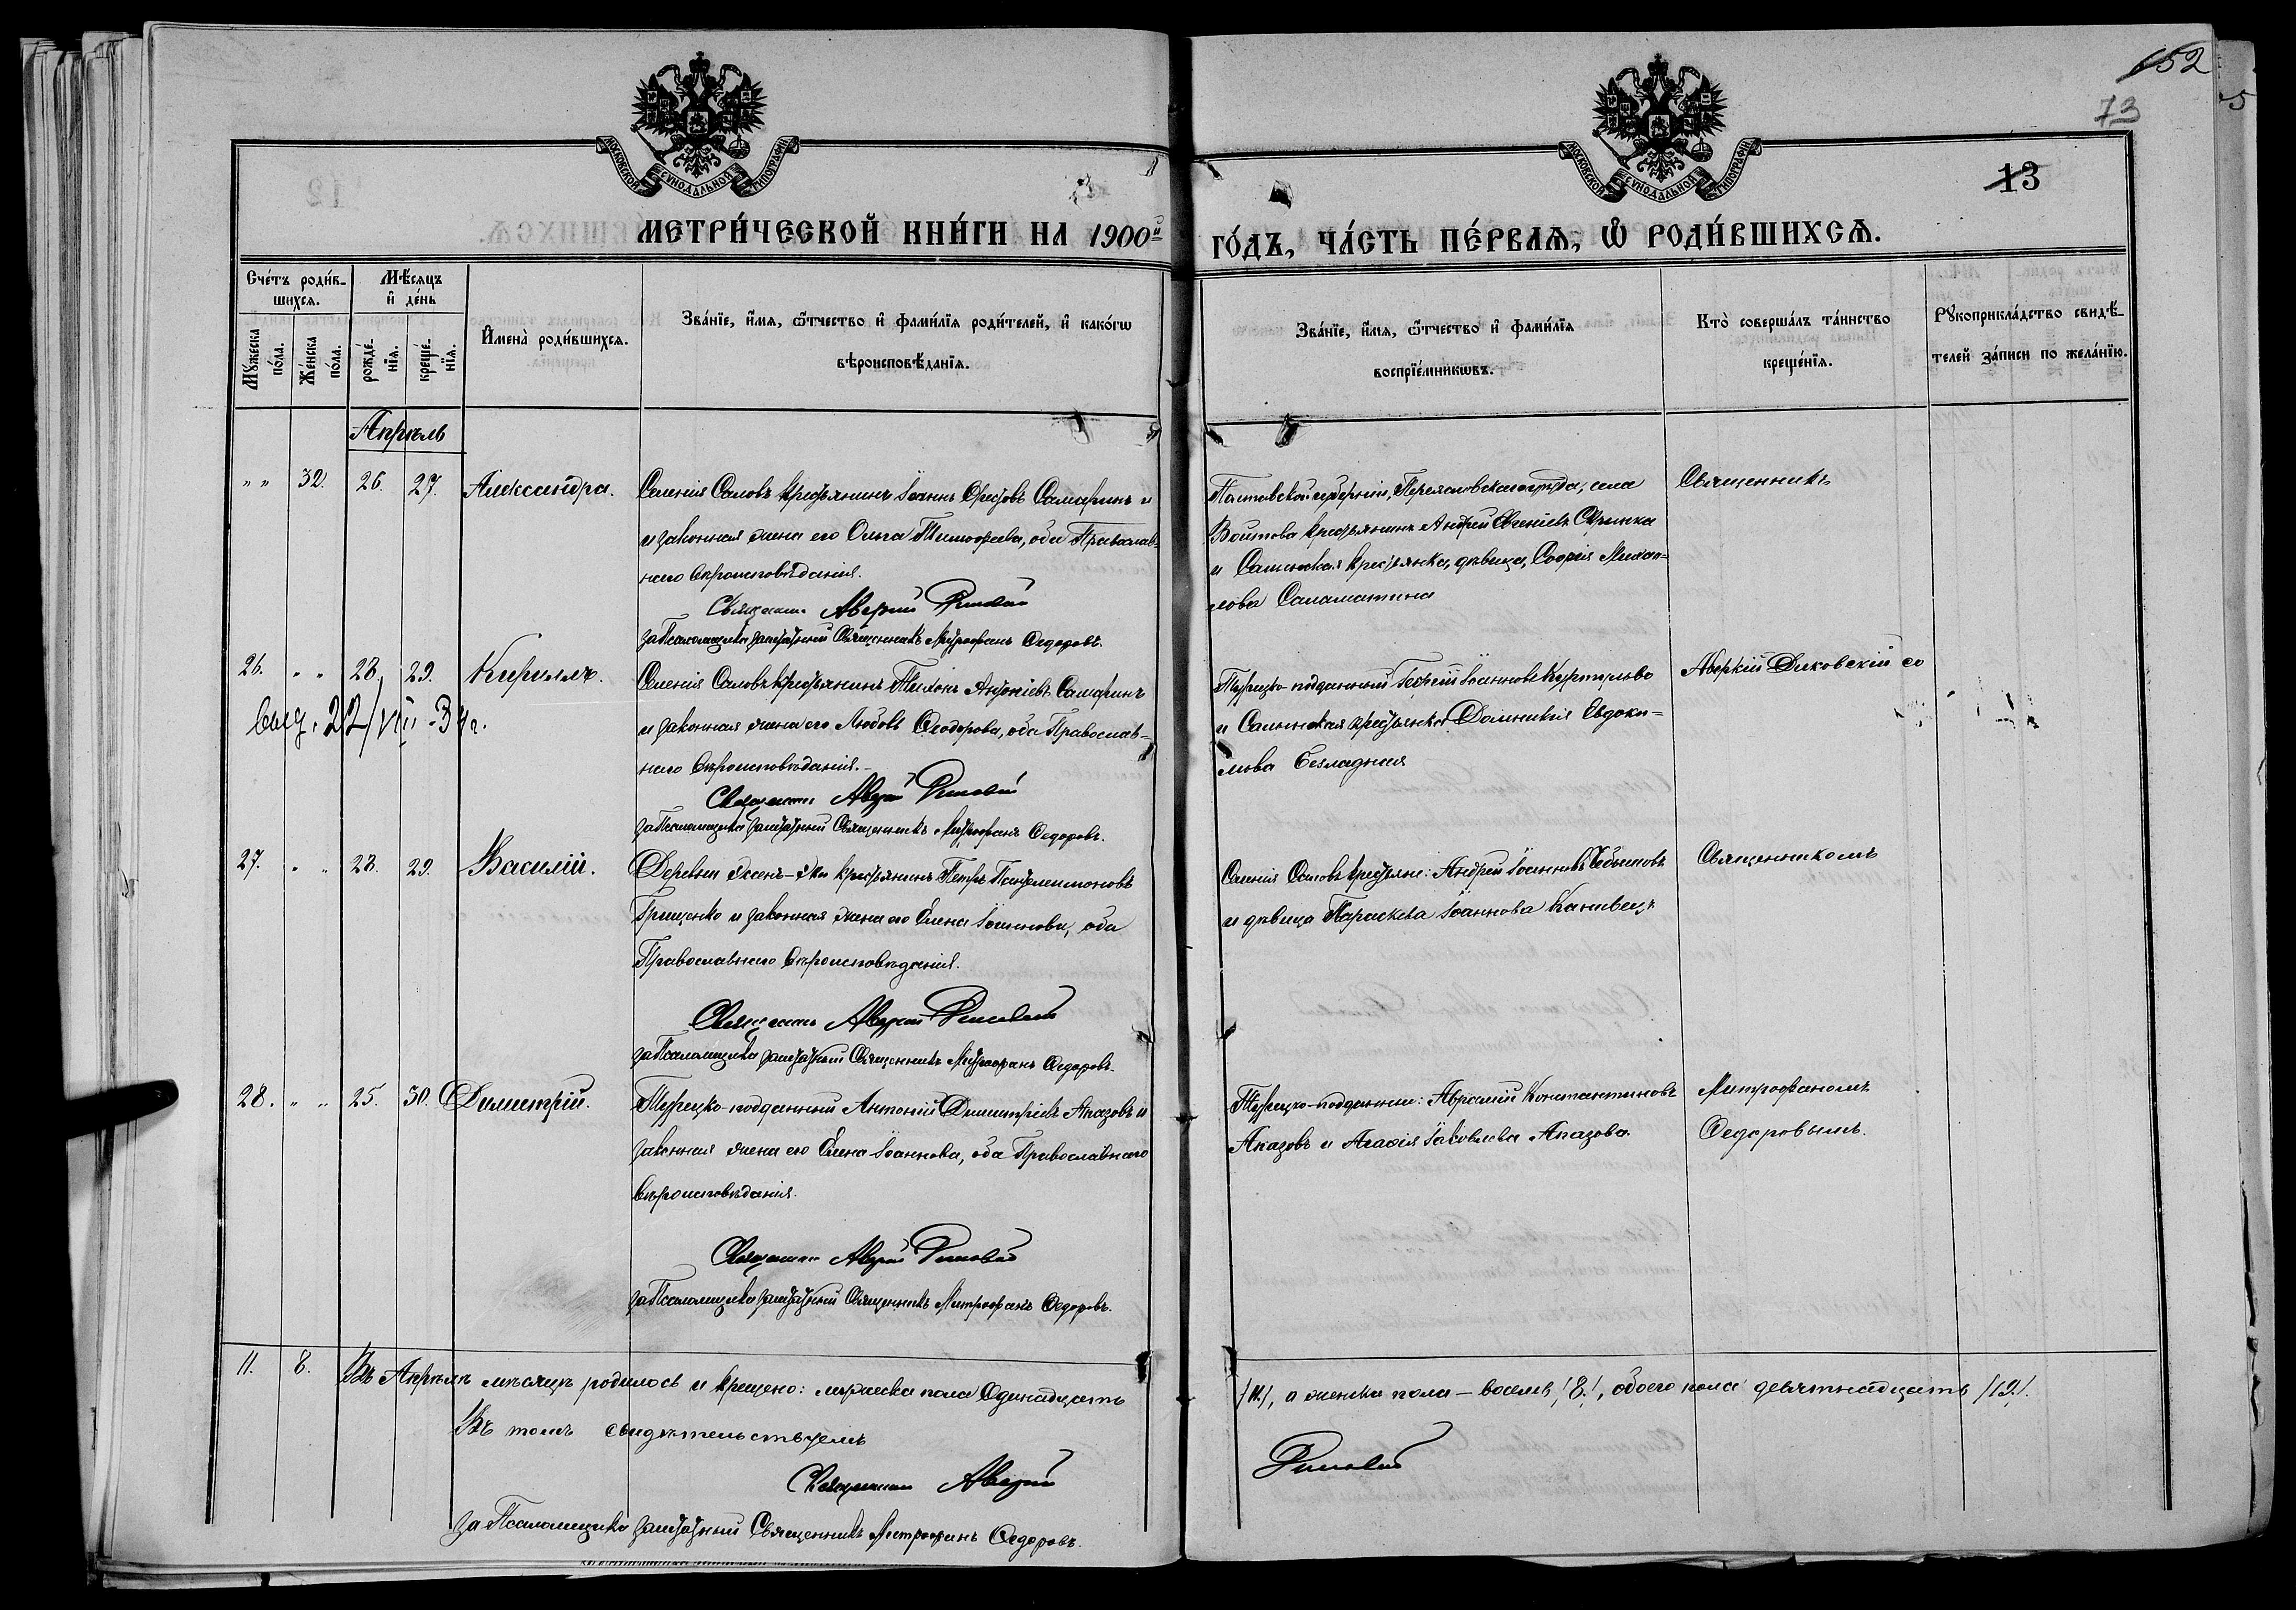 152
73
13
МОСКОВСКОЙ СѴНОДАЛЬНОЙ ТИПОГРАФІИ
МОСКОВСКОЙ СѴНОДАЛЬНОЙ ТИПОГРАФІИ
МЕТРИ́ЧЕСКОЙ КНИ́ГИ НА 1900й
ГО́ДЪ, ЧА́СТЬ ПЕ́РВАѦ, Ѡ РОДИ́ВШИХСѦ.
Сче́тъ роди́в-
шихсѧ.
Мѣ́сѧцъ
и҆ де́нь
Мꙋжеска по́ла.
Же́нска по́ла.
рожде́-нїѧ.
креще́-нїѧ.
И҆мена̀ роди́вшихсѧ.
Зва́нїе, и҆́мѧ, ѻ҆́тчество и҆ фами́лїѧ роди́телей, и҆ како́гѡ
вѣроисповѣ́данїѧ.
Зва́нїе, и҆́мѧ, ѻ҆́тчество и҆ фами́лїѧ
воспрїе́мникѡвъ.
Кто̀ соверша́лъ та́инство
креще́нїѧ.
Рꙋкоприкла́дство свидѣ́-
телей за́писи по жела́нїю.
Апрѣль
" " 32. 26. 27. Александра.
Селенія Саловъ крестьянинъ Іоаннъ Самаринъ и
и законная жена его Ольга Тимофеева, оба Православ-
наго вѣроисповѣданія.
Священникъ Аверкій
за Псаломщика заштатный Священникъ Митрофанъ Ѳедоровъ.
Полтавской губерніи, Переяславскаго уѣзда, села
Войтова крестьянинъ Андрей
и крестьянка, дѣвица, Софія Михаи-
лова Саламатина
Священникъ
26. " " 28. 29. Кириллъ.
22/VII-34г.
Селенія Саловъ крестьянинъ Тихонъ Антоніевъ Самаринъ
и законная жена его Любовь Ѳеодорова, оба Православ-
наго вѣроисповѣданія.
Священникъ Аверкій
за Псаломщика заштатный Священникъ Митрофанъ Ѳедоровъ.
Турецко-подданный Георгій Іоанновъ
и крестьянка Домникія Евдоки-
мова Безладная
Аверкій Диковскій со
27. " " 28. 29. Василій.
Деревни крестьянинъ Петръ Пантелеимоновъ
Грищенко и законная жена его Елена Іоаннова, оба
Православнаго вѣроисповѣданія.
Священникъ Аверкій
за Псаломщика заштатный Священникъ Митрофанъ Ѳедоровъ.
Селенія Саловъ крестьяне: Андрей Іоанновъ
и дѣвица Параскева Іоаннова Канивецъ
Священникомъ
28. " " 25. 30. Димитрій.
Турецко-подданный Антоній Димитріевъ Апазовъ и
законная жена его Елена Іоаннова, оба Православнаго
вѣроисповѣданія.
Священникъ Аверкій
за Псаломщика заштатный Священникъ Митрофанъ Ѳедоровъ.
Турецко-подданные: Аврамій Константиновъ
Апазовъ и Агафія Іаковлева Апазова
Митрофаномъ
Ѳедоровымъ.
11. 8. Въ Апрѣлѣ мѣсяцѣ родилось и крещено: мужеска пола Одинадцать
/11/, а женска пола — восемь /8/, обоего пола девятнадцать /19/.
Въ томъ свидѣтельствуемъ
Священникъ Аверкій
за Псаломщика заштатный Священникъ Митрофанъ Ѳедоровъ.